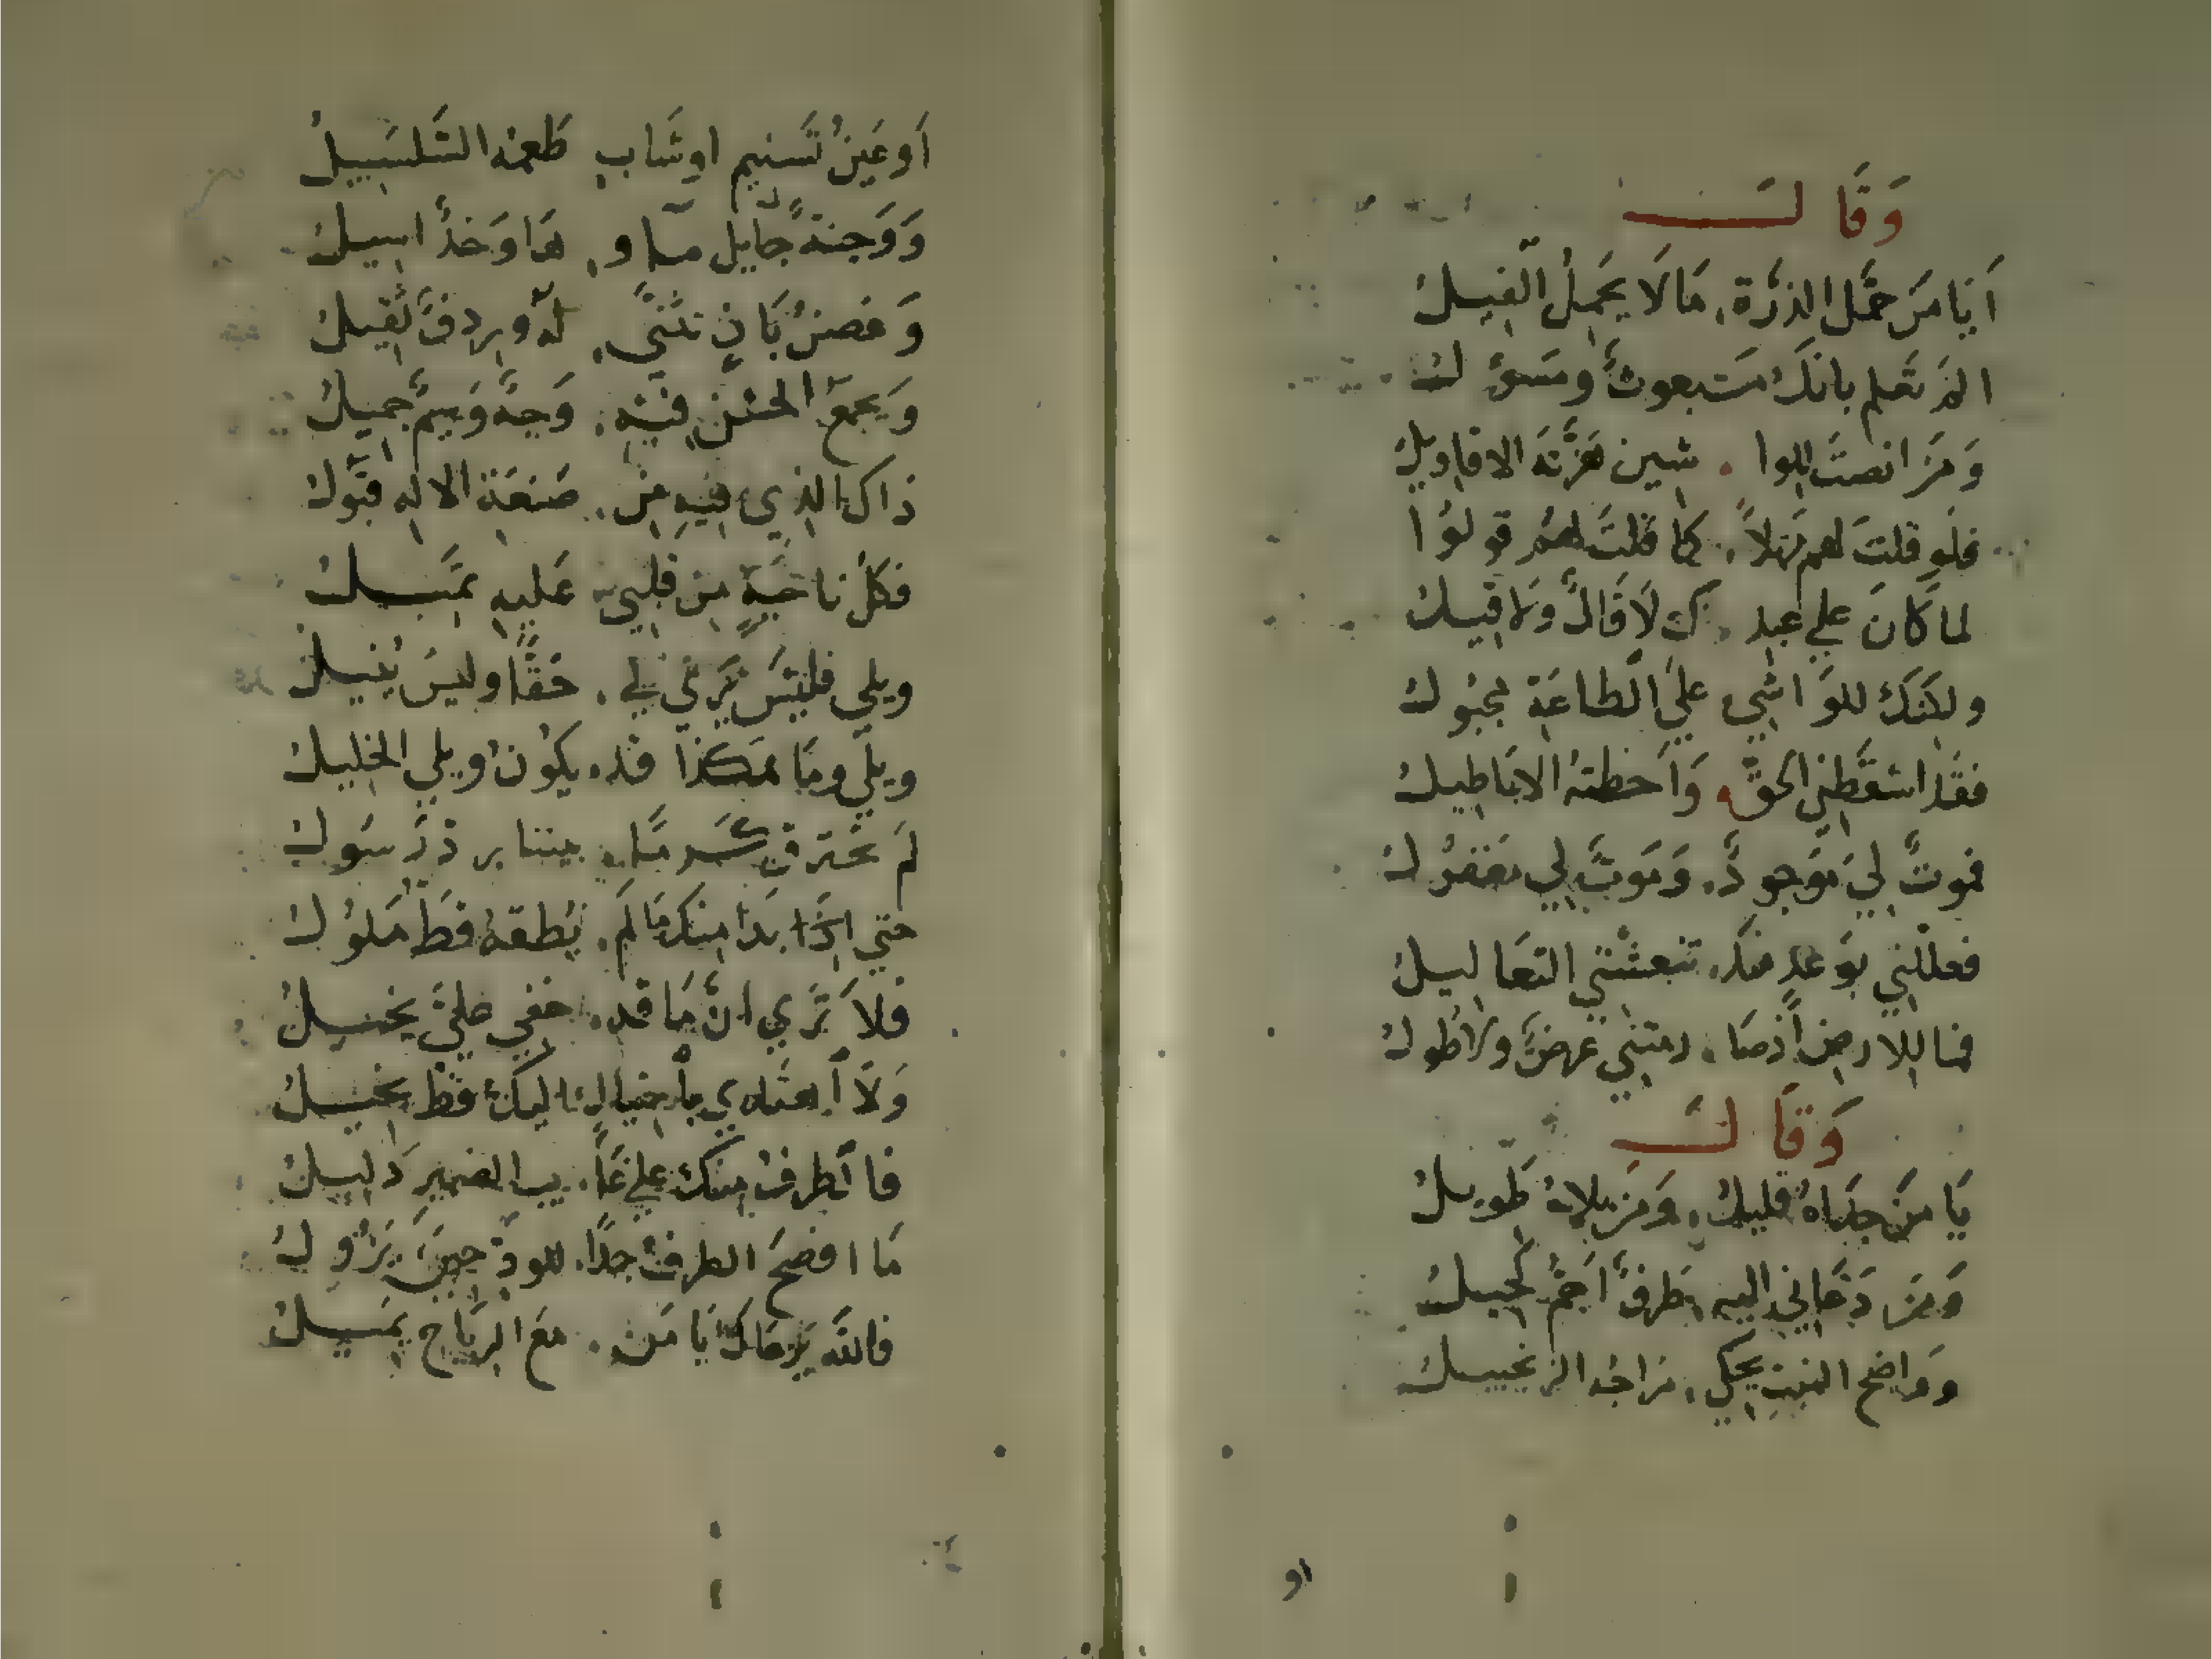 وَقَالَ
اَيَا مَن حمَّل الذرَّة . مَا لَا يَحمِلُ الفِيلُ
الم تَعلم بانكَ مَبعوثٌ ومسؤلُ
وَمَن انصتَ للوا . شين هَزَّته الاقاويلُ
فلو قلتَ لهم مَهلاً . كما قلتَ لهُم قولوُا
لما كَانَ علي عبد . ك لَا قَالٌ ولا قيلُ
ولكنكَ للوَاشي علي الطاعَة مجبولُ
فقد اسقَطني الحقُّ . وَاَحظته الابَاطيلُ
فموتٌ ليَ مَوجودٌ . وَموتٌ لي
فعللني بوَعدٍ منكَ . تنعشني التعَاليلُ
فما للارضِ اذ صَا . رمتني عرضٌ ولا طولُ
وَقَالَ
يَا مَن جَدَاهُ قليلُ . وَمَن بلاهُ طَويلُ
وَمَن دَعَاني اليه . طَرفٌ اَحمُّ كحيلُ
وَوَاضح النبتِ يحكي . مزاجُه الزنجبيلُ
او
اَو عَينُ تَسنيمٍ او شَابَ طَعمه السَّلسَبيلُ
وَوَجنةٌ جايل ماو . هَا وَخدٌّ اسيلُ
وَغصنُ بَانٍ تثنَّي . له وردفٌ ثقيلُ
وَيجمعَ الحُسنَ فيه . وَجهٌ وَسيمٌ جميلُ
ذاك الذي فيه من . صَنعَة الاله قبُولُ
فكلُ ناحيَةٍ من قلبي عَليه تميلُ
ويلي فليسَ يَرثي لي . حَقًّا وليسَ يُنيلُ
ويلي ومَا هَكذا قد . يكُونُ ويلي الخليلُ
لم بيننا رسَولُ
حتي اذا بدَا منكَ مَا لَم . يُطقهُ قَط مَلولُ
فلاَ تَرَي انَّ مَا قد . خفي عليَّ يخيلُ
وَلَا اليكَ قَط
فاَلطرفُ منكَ علي غَا . يب الضمير دَليلُ
مَا افضحَ الطرفَ جدًا . للود حينَ يَزُولُ
فاللَّه يَرعَاكَ يَا مَن . معَ الريَاح يَميلُ